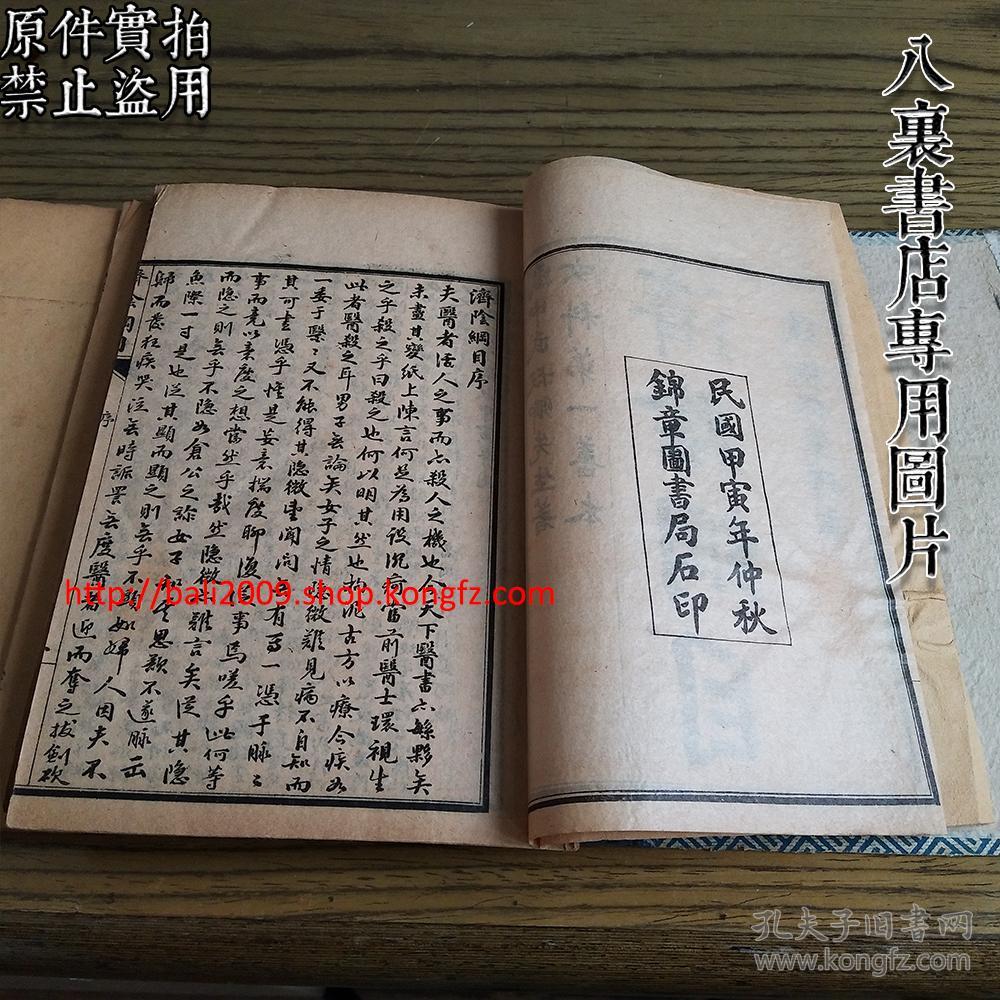 原件實拍
禁止盜用
八裏書店專用圖片
民國甲寅年仲秋
錦章圖書局石印
濟陰綱目序
夫醫者活人之事而亦殺人之機也今天下醫書亦夥夥矣
未盡其變紙上陳言何足為用設沉疴當前醫士環視生
之乎殺之乎曰殺之也何以明其然也拘泥古方以療今疾如
此者醫殺之耳男子無論矣女子之情隱微難見病不自知而
一委于醫醫又不能得其隱微望聞問
有焉一憑于脉
其可盡憑乎惟是妄意揣度聊
事
事而竟以意度之想當然乎哉然隱微
難言矣從其隱
而隱之則無乎不隱如倉公之診女子
思歡不遂脉云
魚際一寸是也從其顯而顯之則無乎不顯如婦人因夫不
歸而發狂疾哭泣無時詬詈無度醫者迎而奪之拔劍砍
序
http://bali2009.shop.kongfz.com
孔夫子旧书网
www.kongfz.com